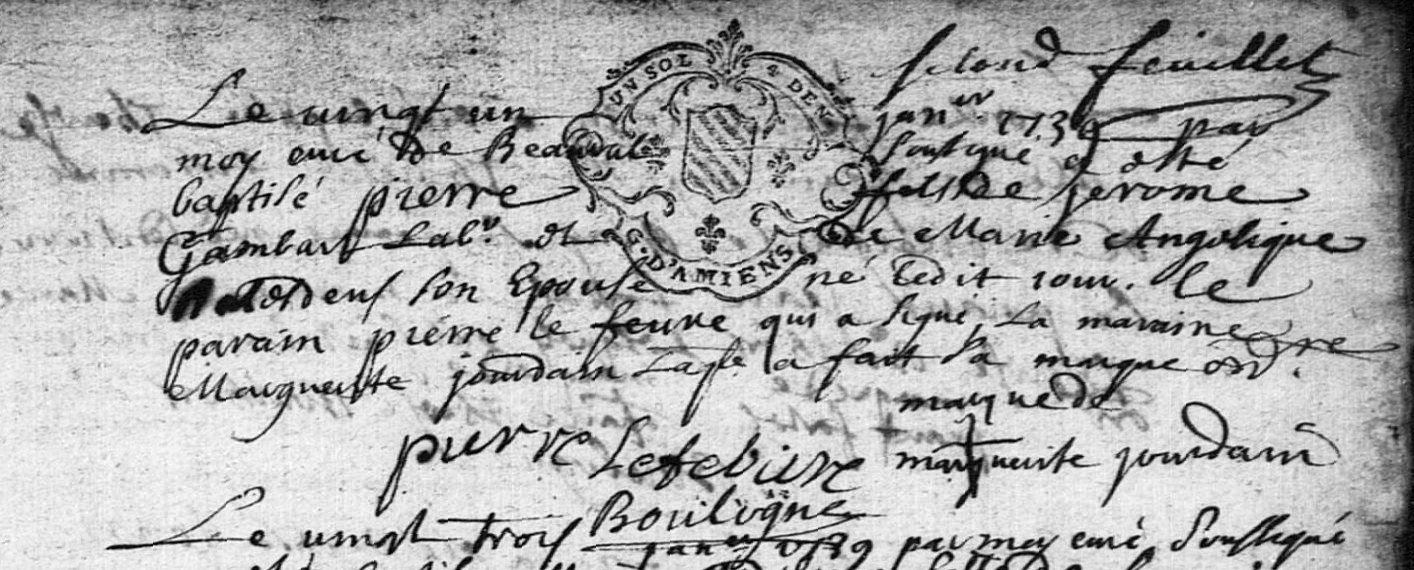 second feuillet
UN SOL 4 DEN
Le vingt un janer 1739 par
moy curé de Beauval soussigné a esté
baptisé pierre fils de jerome
Gambart Labr et de Marie Angelique
son Epouse né Ledit jour. Le
parain pierre le feuvre qui a signé, La maraine
Margueritte jourdain Laqle a fait sa marque ordre
G. D'AMIENS
marque de
pierre Lefebvre margueritte jourdain
Boulogne
Le vingt trois janer 1739 par moy curé soussigné